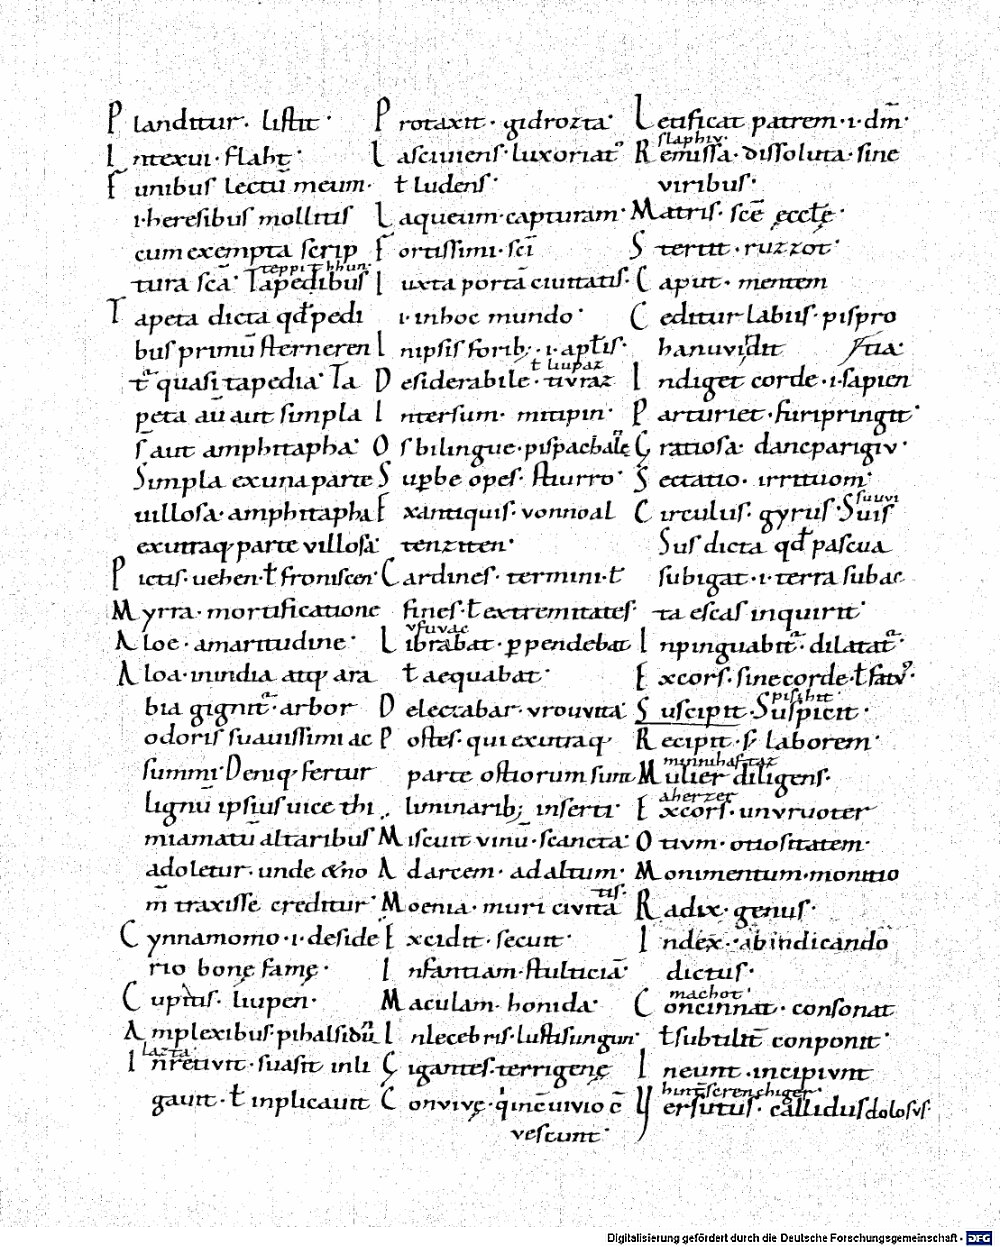 Planditur. listit·
Intexui· flaht·
Funibus lectū meum·
i·heresibus mollitis
cum exempta scrip
teppithhun·
tura scā· Tapedibus
Tapeta dicta qđ pedi
bus primū sterneren
t quasi tapedia· Ta
peta aū aut simpla
s̄ aut amphitapha·
Simpla ex una parte
uillosa· amphitapha
ex utraq; parte villosa·
Pictis· uehen· ƚ froniscen·
Myrra· mortificatione
Aloe· amaritudine·
Aloa· in india atq; ara
bia gignit· arbor
odoris suauissimi ac
summi· Deniq; fertur
lignū ipsius uice thi
miamatū altaribus
adoletur· unde & no
m̄ traxisse creditur·
Cynnamomo· i· deside
rio bonę famę·
Cupitis· liupen·
Amplexibus· pihalsidūn
lazta·
Inretivit· suasit inli
gauit· ƚ inplicauit
Protaxit· gidrozta·
Lasciuiens· luxoriat᷒
ƚ ludens·
Laqueum· capturam·
Fortissimi· scī
Iuxta portā ciuitatis·
i· in hoc mundo·
In ipsis forib; · i· apƚis·
ƚ liupaz
Desiderabile· tivraz
Intersum· mitipin·
Os bilingue· pispachaƚe
Supbe opes· stiurro·
Ex antiquis· vonnoal
tenziten·
Cardines· termini· ƚ
fines· ƚ extremitates·
vfuvac
Librabat· ꝑpendebat
ƚ aequabat·
Delectabar· vrouvita·
Postes· qui ex utraq;
parte ostiorum sunt
luminarib; inserti·
Miscuit vinū· scancta·
Ad arcem· ad altum·
tis·
Moenia· muri civita
Excidit· secuit·
Infantiam· stulticiā·
Maculam· honida·
Inlecebris· lustisungun·
Gigantes· terrigenę
Convivę· q in c̄uiuio c̄
vescunt·
Letificat patrem· i· dm̄·
slaphiv·
Remissa· dissoluta· sine
viribus·
Matris· scē eccƚę·
Stertit· ruzzot·
Caput· mentem
Ceditur labiis· pispro
hanuvirdit
Indiget corde· i· sapien
tia·
Parturiet· furipringit·
Gratiosa· dancparigiv·
Sectatio· irrituom·
suuvi
Circulus· gyrus· Suis
Sus dicta qđ pascua
subigat· i· terra subac
ta escas inquirit·
Inpinguabit· dilatat·
Excors· sine corde· ƚ fatv᷒·
pisihit·
Suscipit· Suspicit·
Recipit· s; laborem·
minnihaftaz
Mulier diligens·
aherzer
Excors· unvruoter
Otivm· otiositatem·
Monimentum· monitio
Radix· genus·
Index· ab indicando
dictus·
machot·
Concinnat· consonat
ƚ subtilit conponit·
Ineunt· incipivnt
hintscrenchiger·
Versutus· callidus dolosvs·
Digitalisierung gefördert durch die Deutsche Forschungsgemeinschaft - DFG